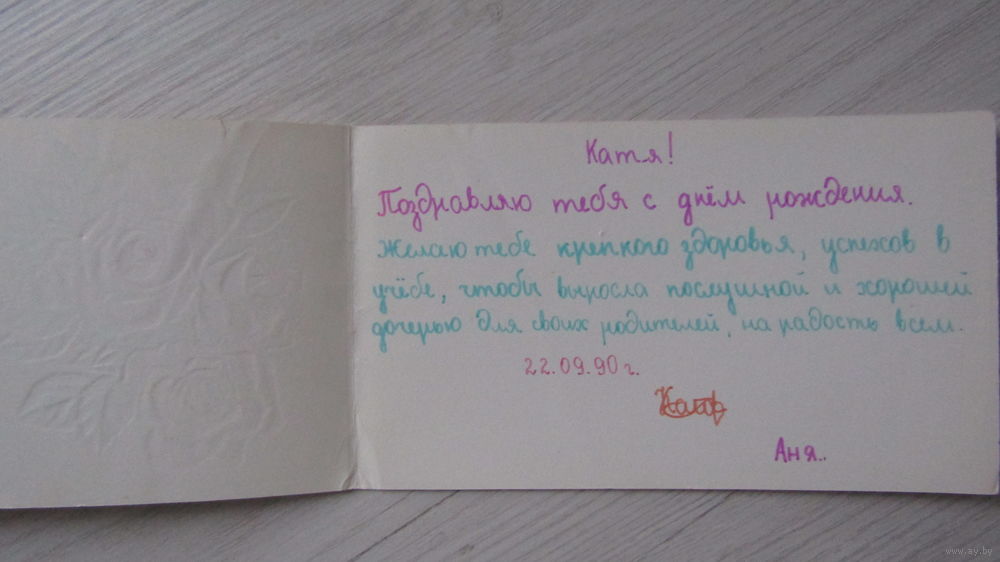 Катя!
Поздравляю тебя с днём рождения.
Желаю тебе крепкого здоровья, успехов в
учёбе, чтобы выросла послушной и хорошей
дочерью для своих родителей, на радость всем.
22.09.90 г.
Аня..
www.ay.by